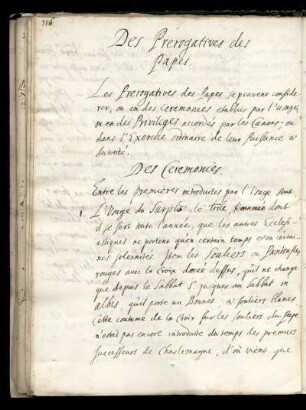 Des Prerogatives des
Papes.
Les Prerogatives des Papes se peuvent conside
rer, ou en des Ceremonies etablies par l'usage,
ou en des Privileges accordés par les Canons, ou
dans l'Exercice ordinaire de leur Puissance et
Autorité.
Des Ceremonies.
Entre les premières introduites par l'Usage sont
L'Usage du Surplis, le
dont
il se sert toute l'année, que les autres Eccles
iastiques ne portent qu'en certain temps et en certaines
solemnites. Item les souliers ou Pantoufles
rouges avec la Croix dorée dessus, qu'il ne change
que depuis le Sabbat St jusques au Sabbat in
albis qu'il porte un Bonnet et souliers blancs
Cette coutume de la Croix sur les souliers du Pape
n'etoit pas encore introduite du temps des premiers
successeurs de Charlemagne, d'où vient que